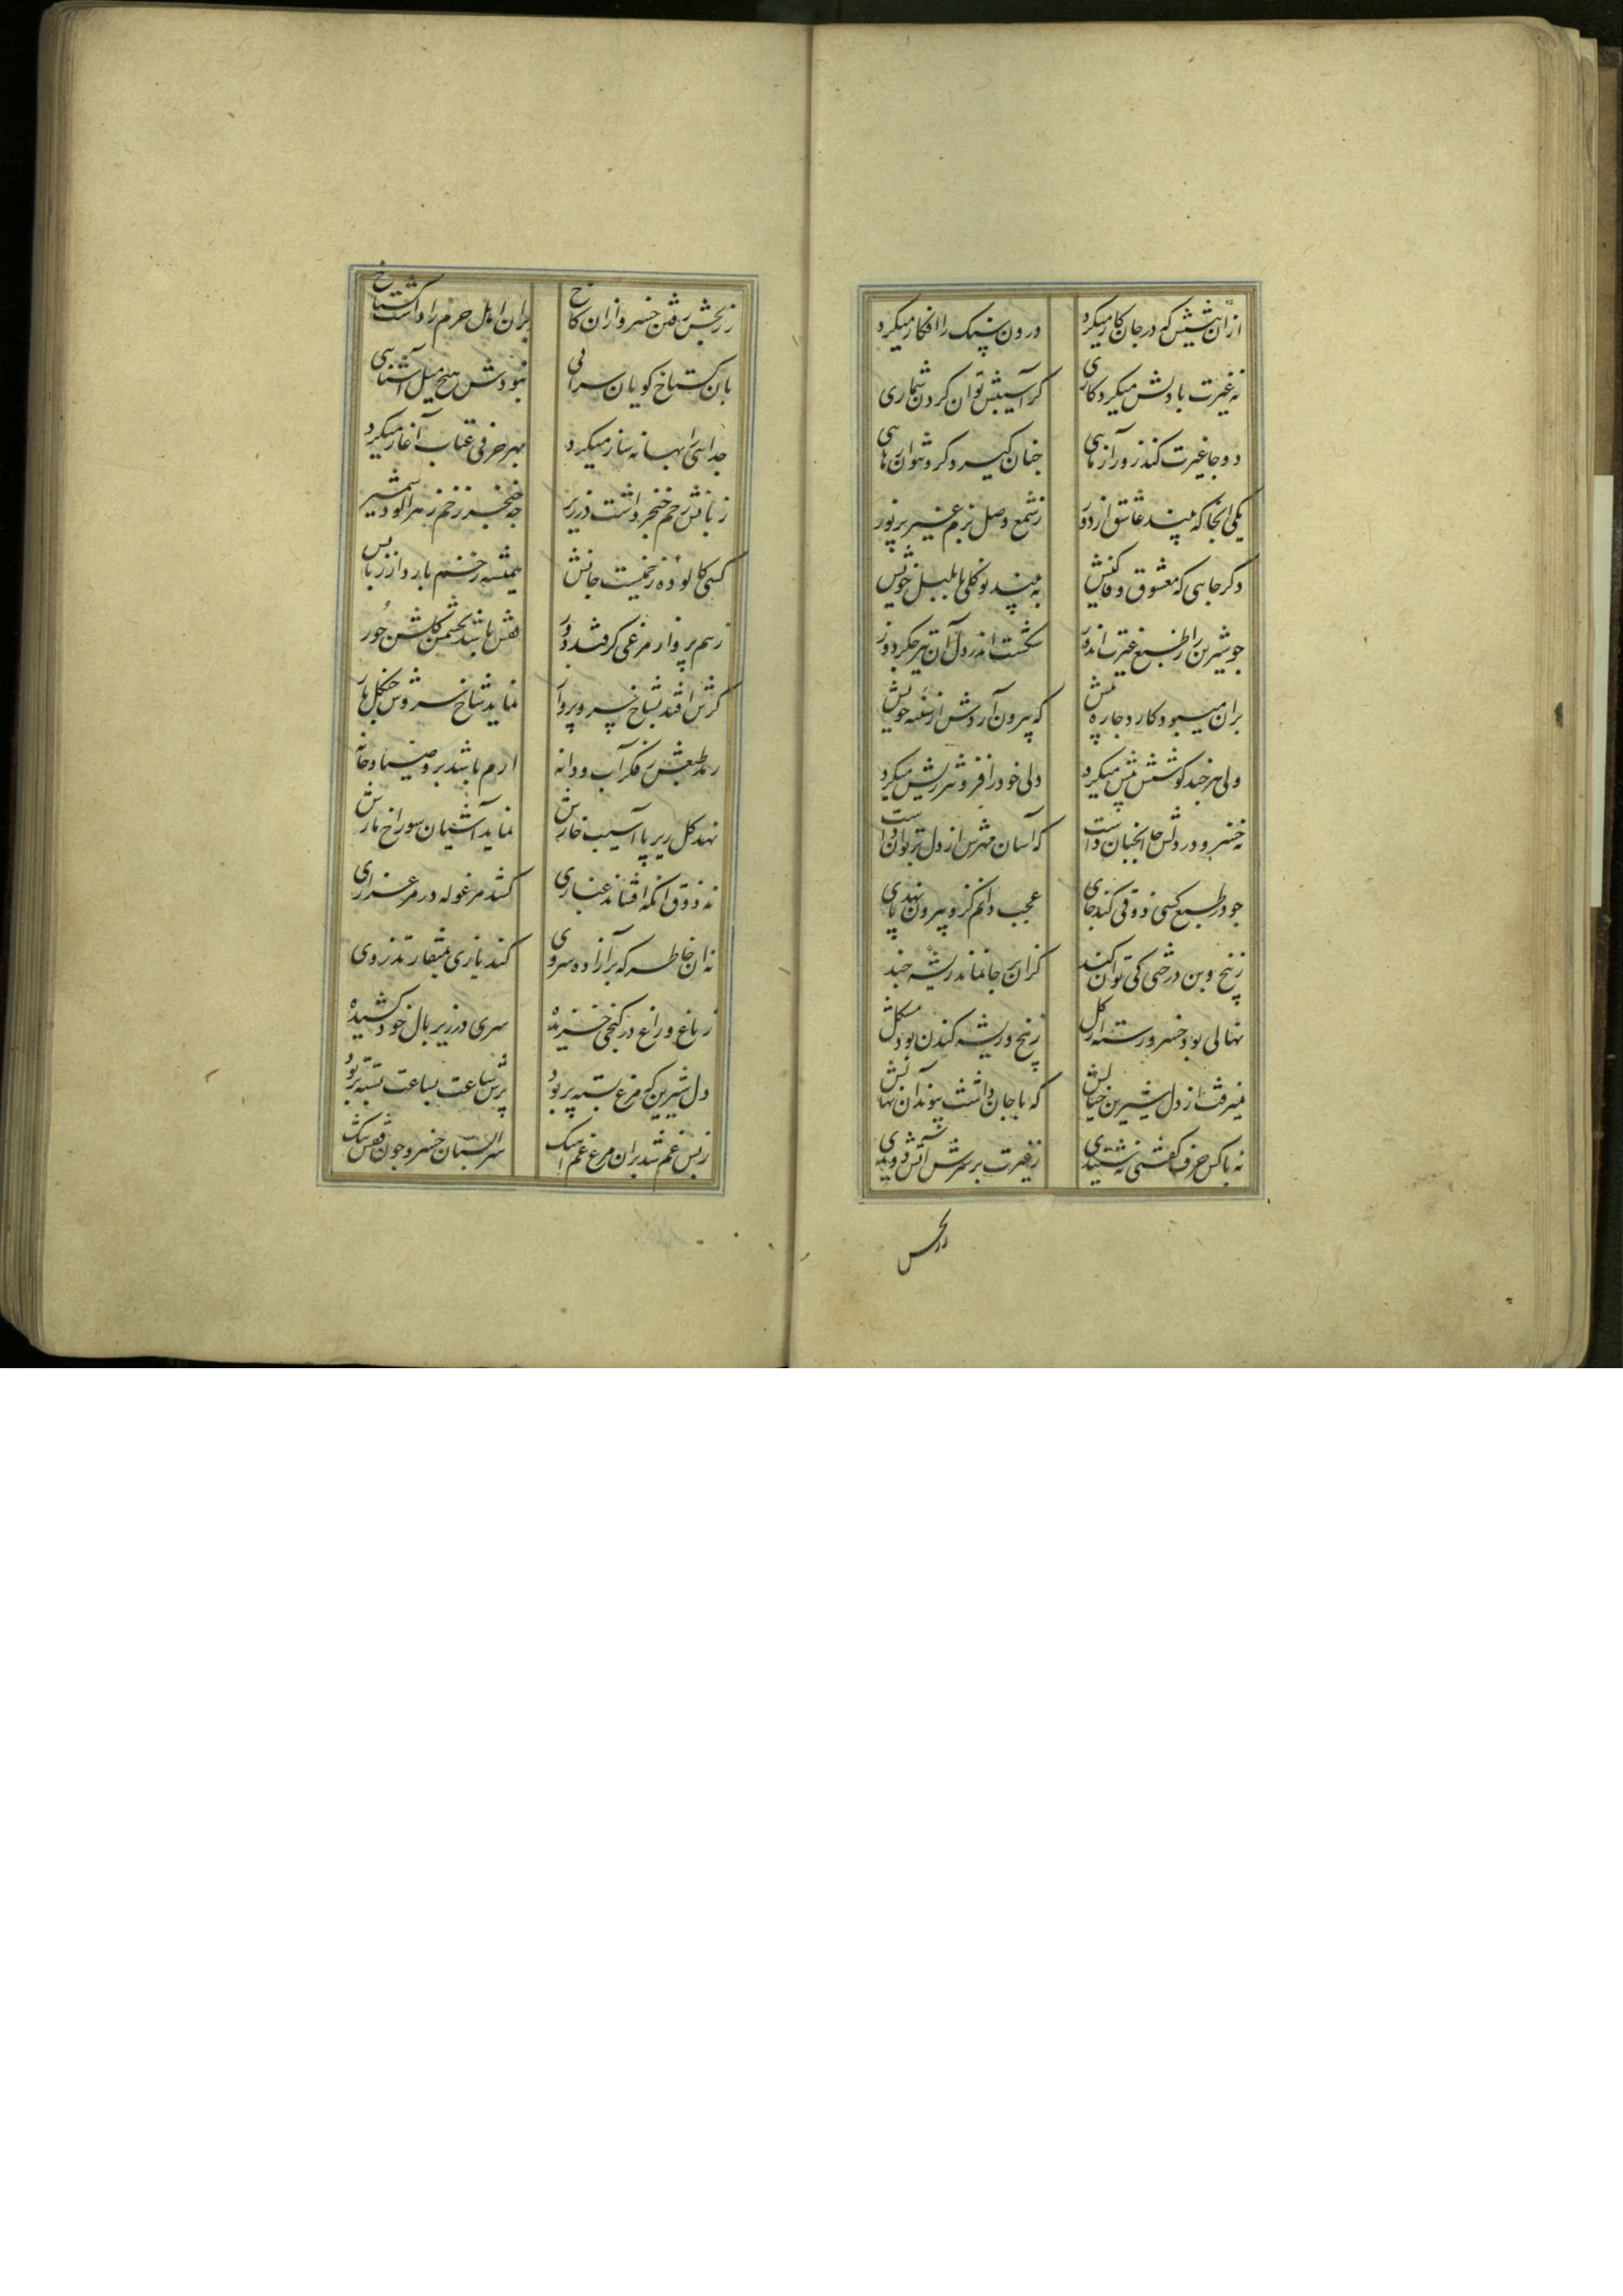 ازان نیشش که در جان کار میکرد درون سنک را افکار میکرد
نه غیرت با دلش میکرد کاری کز آسیبش توان کردن شماری
دو جا غیرت کند زور آزمایی چنان گیرد کزو نتوان رهایی
یکی انجا که بیند عاشق از دور ز شمع وصل بزم غیر پر نور
دکر جایی که معشوق وفا کیش به بیند نوکلی با بلبل خویش
چو شیرین را ز طبع غیرت اندوز شکست اندر دل آن تیر جکردوز
بران میبود کارد چاره پیش که بیرون آردش از سینه خویش
ولی هر چند کوشش بیش میکرد دل خود را فزونتر ریش میکرد
نه خسرو در دلش جا انچنان داشت که آسان مهرش از دل بر توان داشت
چو در طبع کسی ذوقی کند جای عجب دانم کزو بیرون نهد پای
ز بیخ و بن درختی کی توان کند کزان بر جا نماند ریشهٔ چند
نهالی بود خسرو رسته زان کل ز بیخ و ریشه کندن بود مشکل
نمیرفت از دل شیرین خیالش که با جان داشت پیوند آن نهالش
نه با کس حرف گفتی نه شنیدی ز غیرت بر سرش آتش دویدی
ز رنجش رفتن خسرو ازان کاخ بران اهل حرم را داشت کستاخ
بان کستاخ کویان سرایی نبودش هیچ میل آشنایی
جدایی را بهانه ساز میکرد بهر حرفی عتاب آغاز میکرد
زبانش زخم خنجر داشت در زیر چه خنجر زخم زهر آلود شمشیر
کسی کالوده زخمیست جانش همیشه زخم بارد از زبانش
ز هم پرواز مرغی کو فتد دور قفس باشد بچشمش کلشن حور
کرش افتد بشاخ سرو پرواز نماید شاخ سروش چنکل باز
رمد طبعش ز فکر آب و دانه ارم باشد برو صیاد خانه
نهد کل زیر پا آسیب خارش نماید آشیان سوراخ مارش
نه ذوق آنکه افشاند غباری کشد مرغوله در مرغزاری
نه ان خاطر که بر آزاده سروی کند بازی بمنقار تذروی
ز باغ و راغ در کنجی خزیده سری در زیر بال خود کشیده
دل شیرین که مرغ بسته پر بود پرش ساعت بساعت بسته تر بود
ز بس غم شد بران مرغ غم آهنک سرابستان خسرو چون قفس تنک
ز رنجش